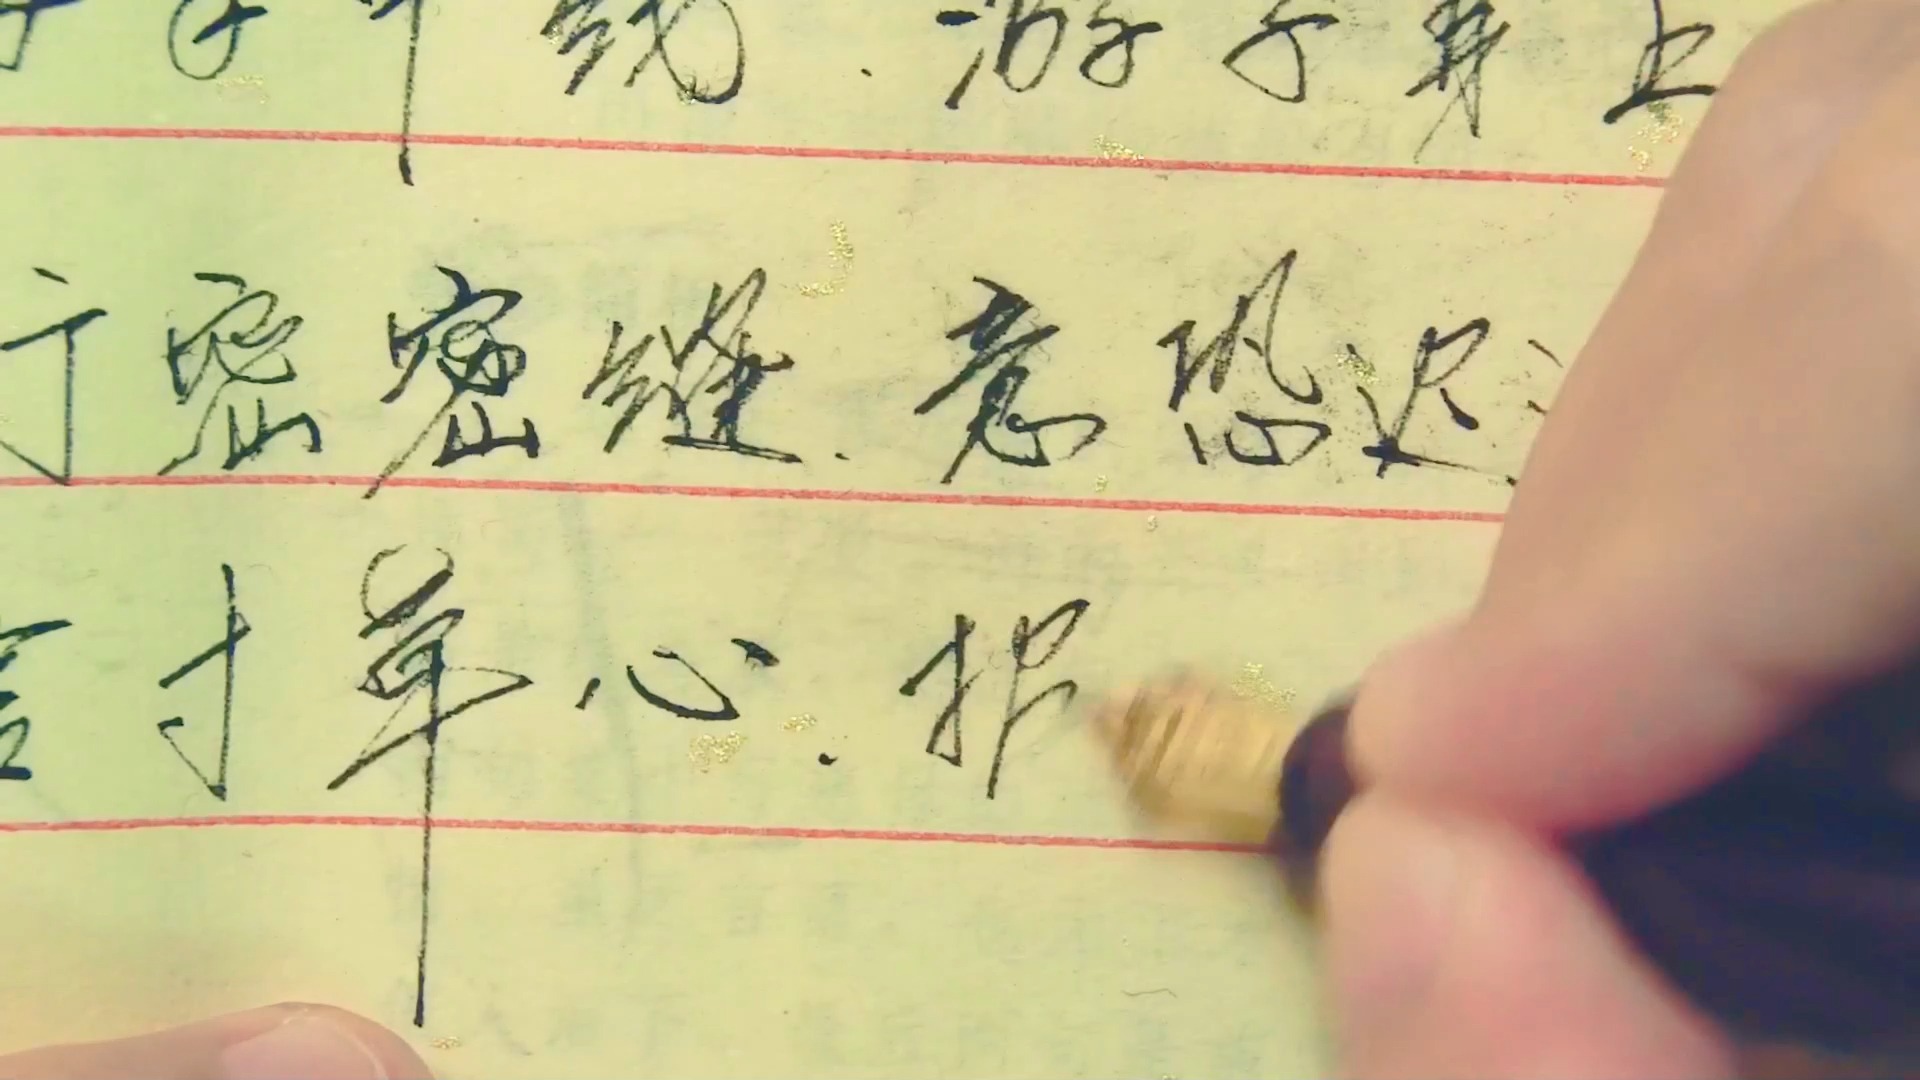 手中线.游子身上
行密密缝.意恐迟
言寸草心.报